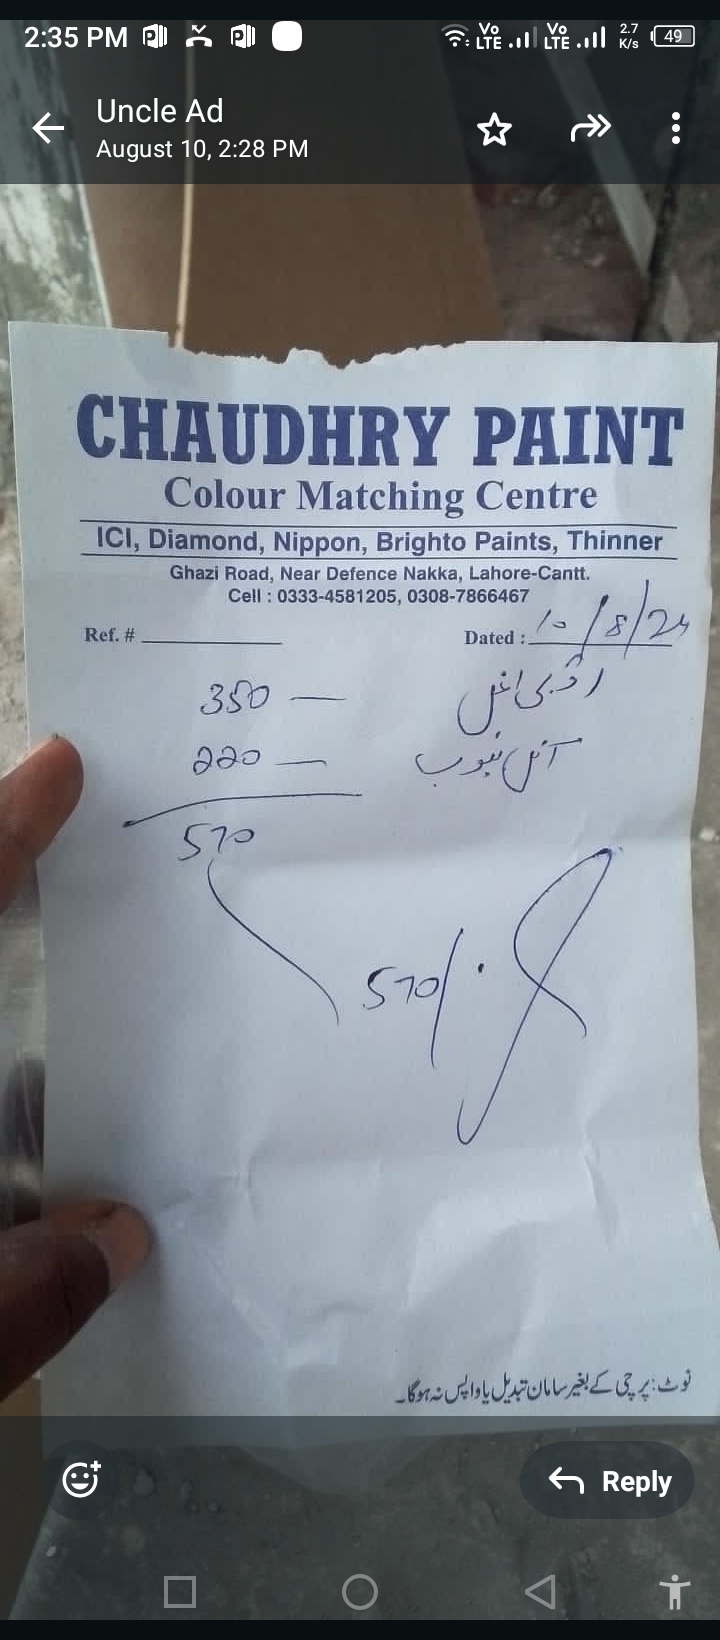 2:35 PM
Vo LTE Vo LTE 2.7 K/s 49
Uncle Ad
August 10, 2:28 PM
CHAUDHRY PAINT
Colour Matching Centre
ICI, Diamond, Nippon, Brighto Paints, Thinner
Ghazi Road, Near Defence Nakka, Lahore-Cantt.
Cell : 0333-4581205, 0308-7866467
Ref. #
Dated : 10/8/24
350 —
220 — آئل ٹیوب
570
570/.
نوٹ: پرچی کے بغیر سامان تبدیل یا واپس نہ ہوگا۔
Reply